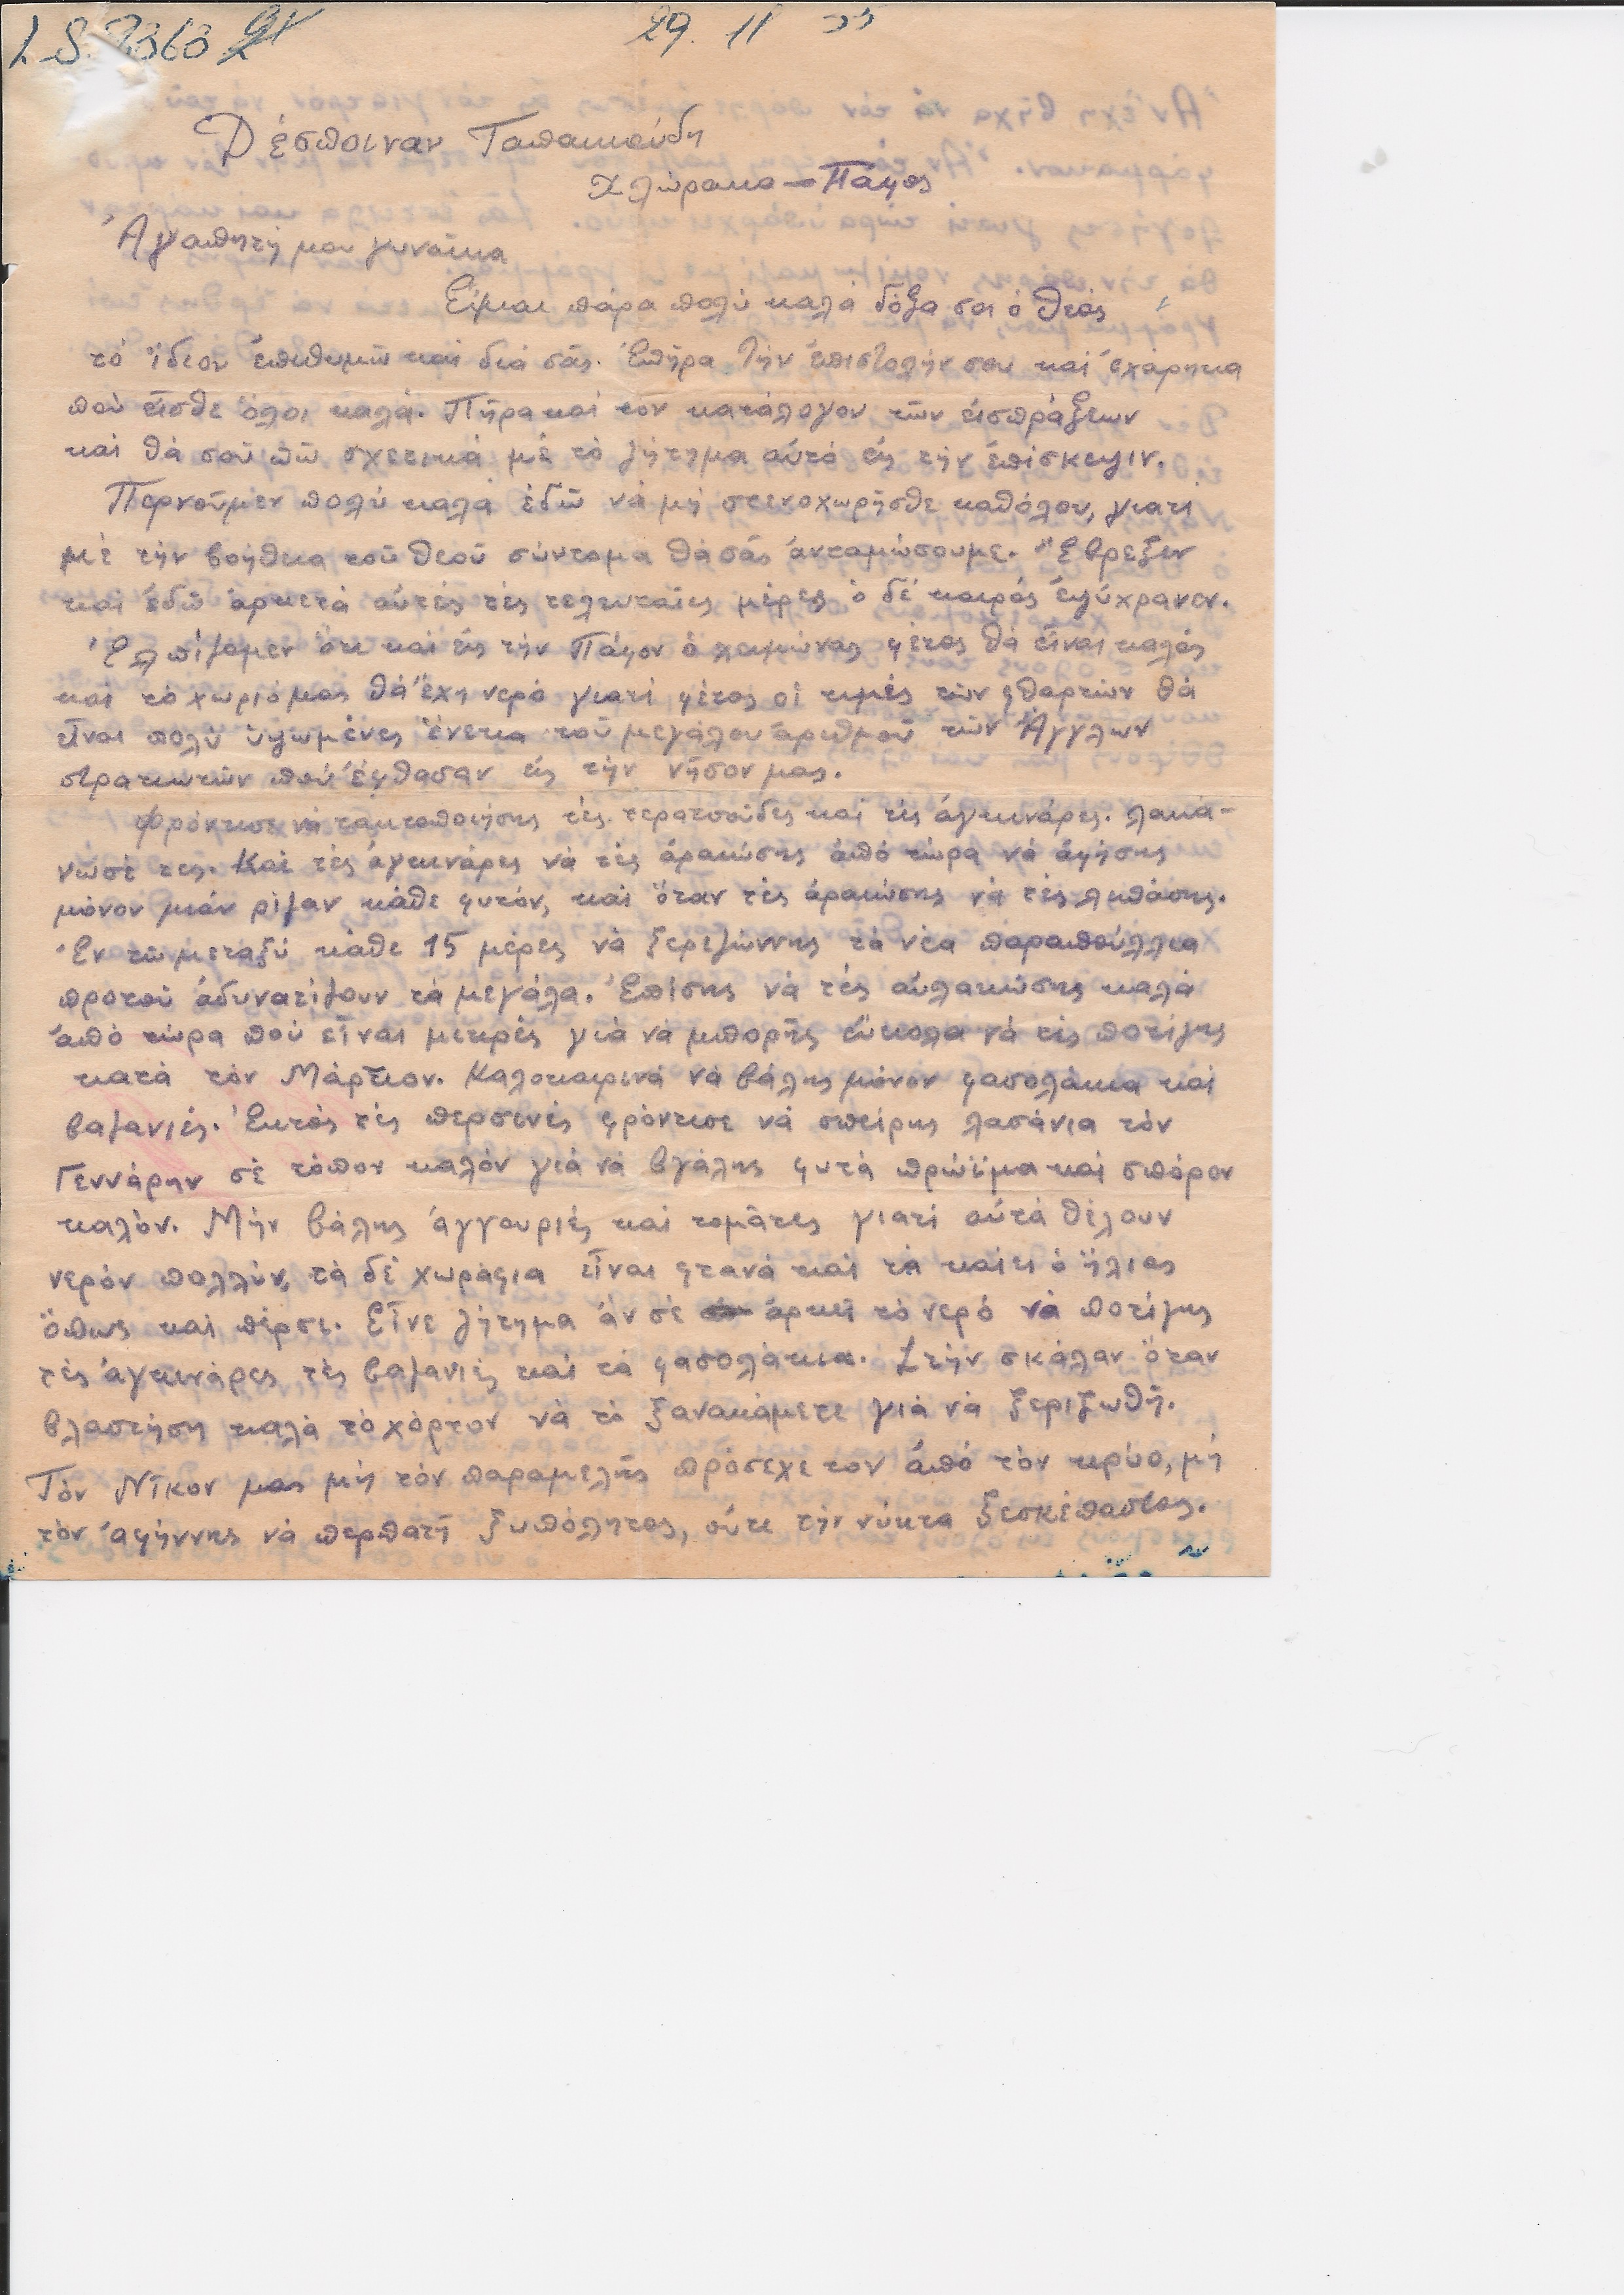 29. 11 55
Δέσποιναν Ταπακούδη
Χλώρακα — Πάφος
Ἀγαπητή μου γυναίκα
Εἶμαι πάρα πολύ καλά δόξα σοι ὁ Θεός
τό ἴδιον ἐπιθυμῶ καί διά σᾶς. Ἐπῆρα τήν ἐπιστολήν σου καί ἐχάρηκα
πού εἶσθε ὅλοι καλά. Πῆρα καί τον κατάλογον τῶν εἰσπράξεων
καί θά σοῦ πῶ σχετικά μέ τό ζήτημα αὐτό εἰς τήν ἐπίσκεψιν.
Περνοῦμεν πολύ καλά ἐδῶ νά μή στενοχωρῆσθε καθόλου, γιατί
μέ τήν βοήθεια τοῦ Θεοῦ σύντομα θά σᾶς ἀνταμώσουμε. Ἔβρεξεν
καί ἐδῶ ἀρκετά αὐτές τές τελευταῖες μέρες ὁ δέ καιρός ἐψύχρανεν.
Ἐλπίζομεν ὅτι καί εἰς τήν Πάφον ὁ χειμώνας φέτος θά εἶναι καλός
καί τό χωριό μας θά ἔχη νερό γιατί φέτος οἱ τιμές τῶν φθαρτῶν θά
εἶναι πολύ ὑψωμένες ἕνεκα τοῦ μεγάλου ἀριθμοῦ τῶν Ἄγγλων
στρατιωτῶν πού ἔφθασαν εἰς τήν νῆσον μας.
Φρόντισε νά τακτοποιήσης τές τερατσοῦδες καί τές ἀγκινάρες. λακά-
νωσέ τες. Καί τές ἀγκινάρες νά τές ἀραιώσης ἀπό τώρα νά ἀφήσης
μόνον μιάν ρίζαν κάθε φυτόν, καί ὅταν τές ἀραιώσης νά τές λιπάσης.
Ἐν τῶ μεταξύ κάθε 15 μέρες νά ξεριζώννης τά νέα παραπούλλια
προτού ἀδυνατίζουν τά μεγάλα. Ἐπίσης νά τές αὐλακώσης καλά
ἀπό τώρα πού εἶναι μικρές γιά νά μπορῆς εὔκολα νά τές ποτίζης
κατά τόν Μάρτιον. Καλοκαιρινά νά βάλης μόνον φασολάκια καί
βαζανιές. Ἐκτός τές περσινές φρόντισε νά σπείρης λασάνια τόν
Γεννάρην σέ τόπον καλόν γιά νά βγάλης φυτά πρώϊμα καί σπόρον
καλόν. Μήν βάλης ἀγγουριές καί τομάτες γιατί αὐτά θέλουν
νερόν πολλύν, τά δέ χωράφια εἶναι φτανά καί τά καίει ὁ ἥλιος
ὅπως καί πέρσι. Εἶνε ζήτημα ἄν σέ ἀρκεῖ τό νερό νά ποτίζης
τές ἀγκινάρες τές βαζανιές καί τά φασολάκια. Στήν σκάλαν ὅταν
βλαστήση καλά τό χόρτον νά τό ξανακάμετε γιά νά ξεριζωθῆ.
Τόν Νῖκον μας μή τόν παραμελῆς πρόσεχε τον ἀπό τόν κρύο, μή
τόν ἀφήννης νά περπατῆ ξυπόλητος, οὔτε τήν νύκτα ξεσκέπαστος.